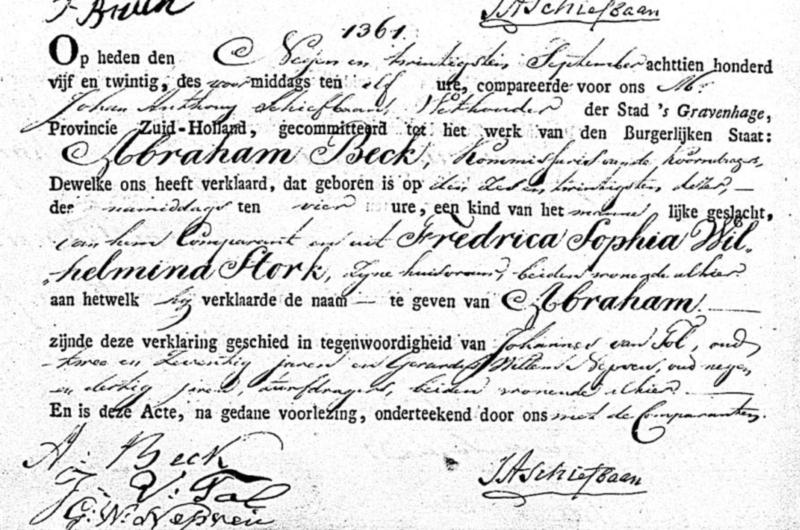 J Bruin JASchiefbaan
1361.
Op heden den Negen en twintigsten September achttien honderd
vijf en twintig, des voormiddags ten elf ure, compareerde voor ons Mr
Johan Anthony Schiefbaan, Wethouder der Stad 's Gravenhage,
Provincie Zuid-Holland, gecommitteerd tot het werk van den Burgerlijken Staat:
Abraham Beck, Kommissaris van de Koorndragers,
Dewelke ons heeft verklaard, dat geboren is op den Zes en twintigsten dezer,
der namiddags ten vier ure, een kind van het manne lijke geslacht,
van hem Comparant en uit Fredrica Sophia Wil-
helmina Stork, zijne huisvrouw, beiden wonende alhier
aan hetwelk hij verklaarde de naam te geven van Abraham
zijnde deze verklaring geschied in tegenwoordigheid van Johannes van Tol, oud
twee en zeventig jaren en Gerardus Willem Nepveu, oud negen
en dertig jaren, turfdragers, beiden wonende alhier
En is deze Acte, na gedane voorlezing, onderteekend door ons met de Comparanten.
A: Beck
J: V: Tol JASchiefbaan
G: W: Nepveu